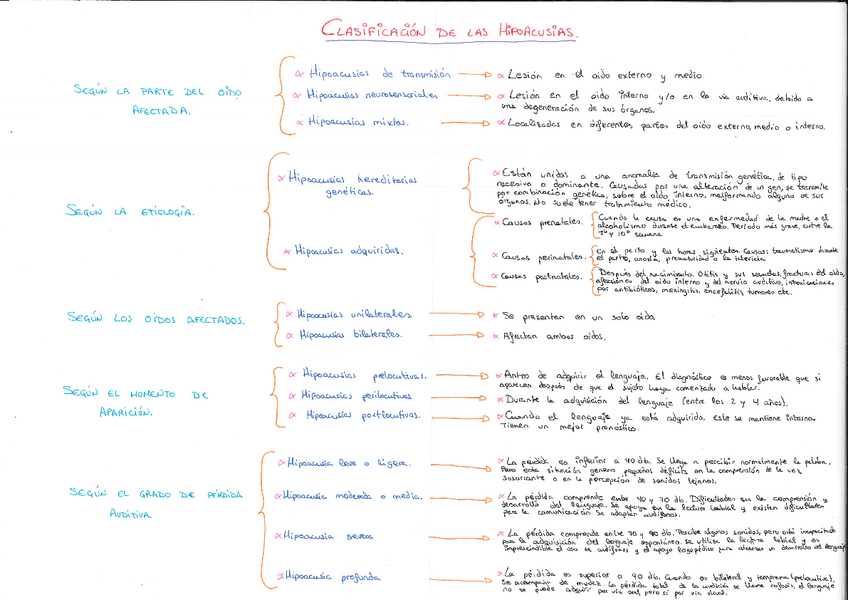 CLASIFICACIÓN DE LAS HIPOACUSIAS.
SEGÚN LA PARTE DEL OÍDO
AFECTADA.
Hipoacusias de transmisión
Lesión en el oido externo y medio.
Hipoacusias neurosensoriales
Lesión en el oido interno y/o en la vía auditiva, debido a
una degeneración de sus órganos.
Hipoacusias mixtas.
Localizadas en diferentes partes del oido externo, medio o interno.
SEGÚN LA ETIOLOGÍA.
Hipoacusias hereditarias
genéticas.
Están unidas a una anomalía de transmisión genética, de tipo
recesivo o dominante. Causadas por una alteración de un gen, se transmite
por combinación genética, sobre el oido interno, malformando alguno de sus
órganos. No suele tener tratamiento médico.
Hipoacusias adquiridas.
Causas prenatales.
Cuando la causa es una enfermedad de la madre o el
alcoholismo durante el embarazo. Período más grave, entre la
7ª y 10ª semana
Causas perinatales.
En el parto y las horas siguientes. Causas: traumatismo durante
el parto, anoxia, prematuridad o la ictericia
Causas postnatales.
Después del nacimiento. Otitis y sus secuelas, fracturas del oido,
afecciones del oido interno y del nervio auditivo, intoxicaciones
por antibióticos, meningitis, encefalitis, tumores etc.
SEGÚN LOS OÍDOS AFECTADOS.
Hipoacusias unilaterales.
Se presentan en un solo oido
Hipoacusias bilaterales.
Afectan ambos oidos.
SEGÚN EL MOMENTO DE
APARICIÓN.
Hipoacusias prelocutivas.
Antes de adquirir el lenguaje. El diagnóstico es menos favorable que si
aparecen después de que el sujeto haya comenzado a hablar.
Hipoacusias perilocutivas
Durante la adquisición del lenguaje (entre los 2 y 4 años).
Hipoacusias postlocutivas.
Cuando el lenguaje ya está adquirido. Este se mantiene interno.
Tienen un mejor pronóstico.
SEGÚN EL GRADO DE PÉRDIDA
AUDITIVA.
Hipoacusia leve o ligera.
La pérdida es inferior a 40 db. Se llega a percibir normalmente la palabra.
Pero esta situación genera pequeños déficits en la comprensión de la voz
susurrante o en la percepción de sonidos lejanos.
Hipoacusia moderada o media.
La pérdida comprende entre 40 y 70 db. Dificultades en la comprensión y
desarrollo del lenguaje. Se apoya en la lectura labial y existen dificultades
para la comunicación. Se adaptan audífonos.
Hipoacusia severa
La pérdida comprende entre 70 y 90 db. Percibe algunos sonidos, pero está
para la adquisición del lenguaje espontánea. Se utiliza la lectura labial y es
imprescindible el uso de audífonos y el apoyo logopédico para alcanzar un desarrollo del lenguaje
Hipoacusia profunda
La pérdida es superior a 90 db. Cuando es bilateral y temprana (prelocutiva),
se acompaña de mudez. La pérdida total de la audición se llama cofosis, el lenguaje
no se puede adquirir por vía oral, pero sí por vía visual.